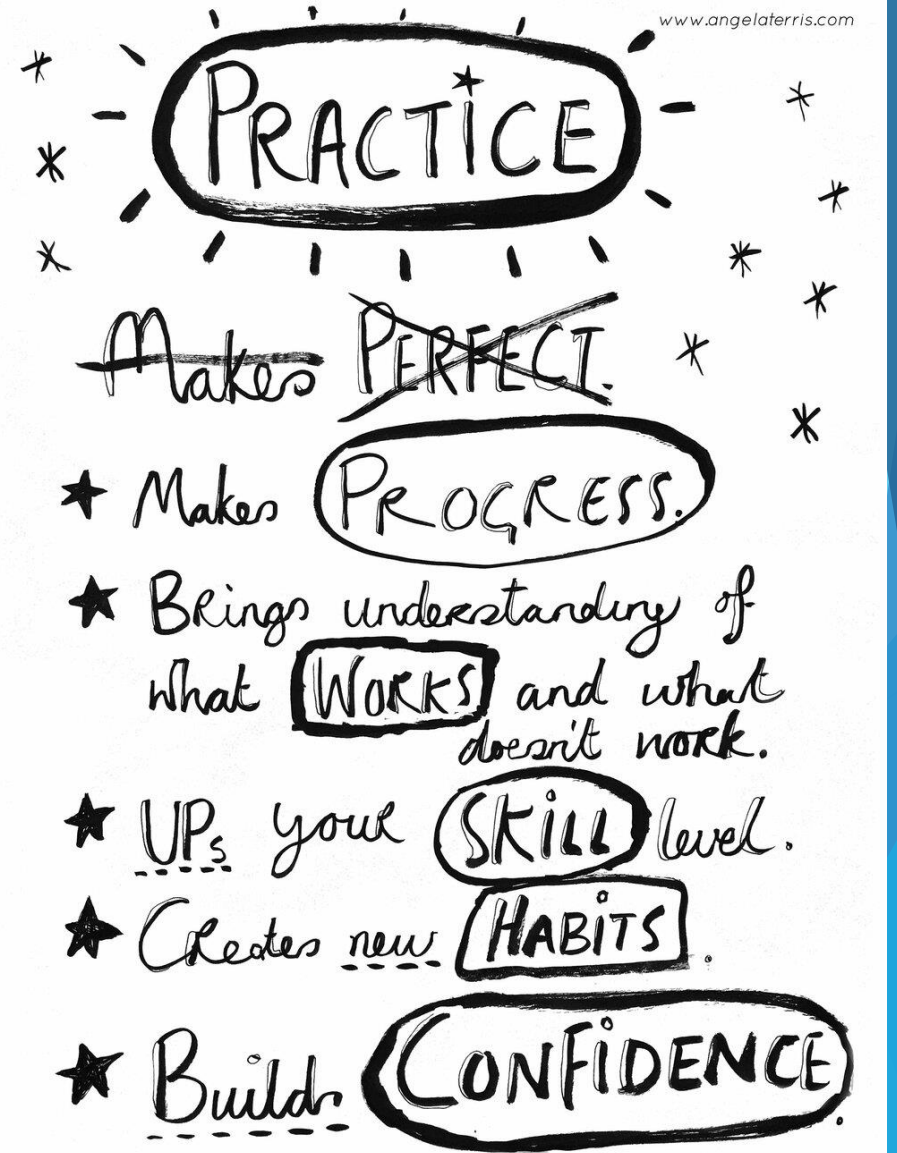 www.angelaterris.com
PRACTICE
Makes PERFECT.
Makes PROGRESS.
Brings understanding of
what WORKS and what
doesn't work.
UPs your SKILL level.
Creates new HABITS.
Builds CONFIDENCE.